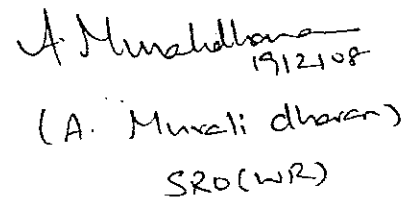 A. Muralidharan
19/2/08
(A. Murali dharan)
SRO(WR)